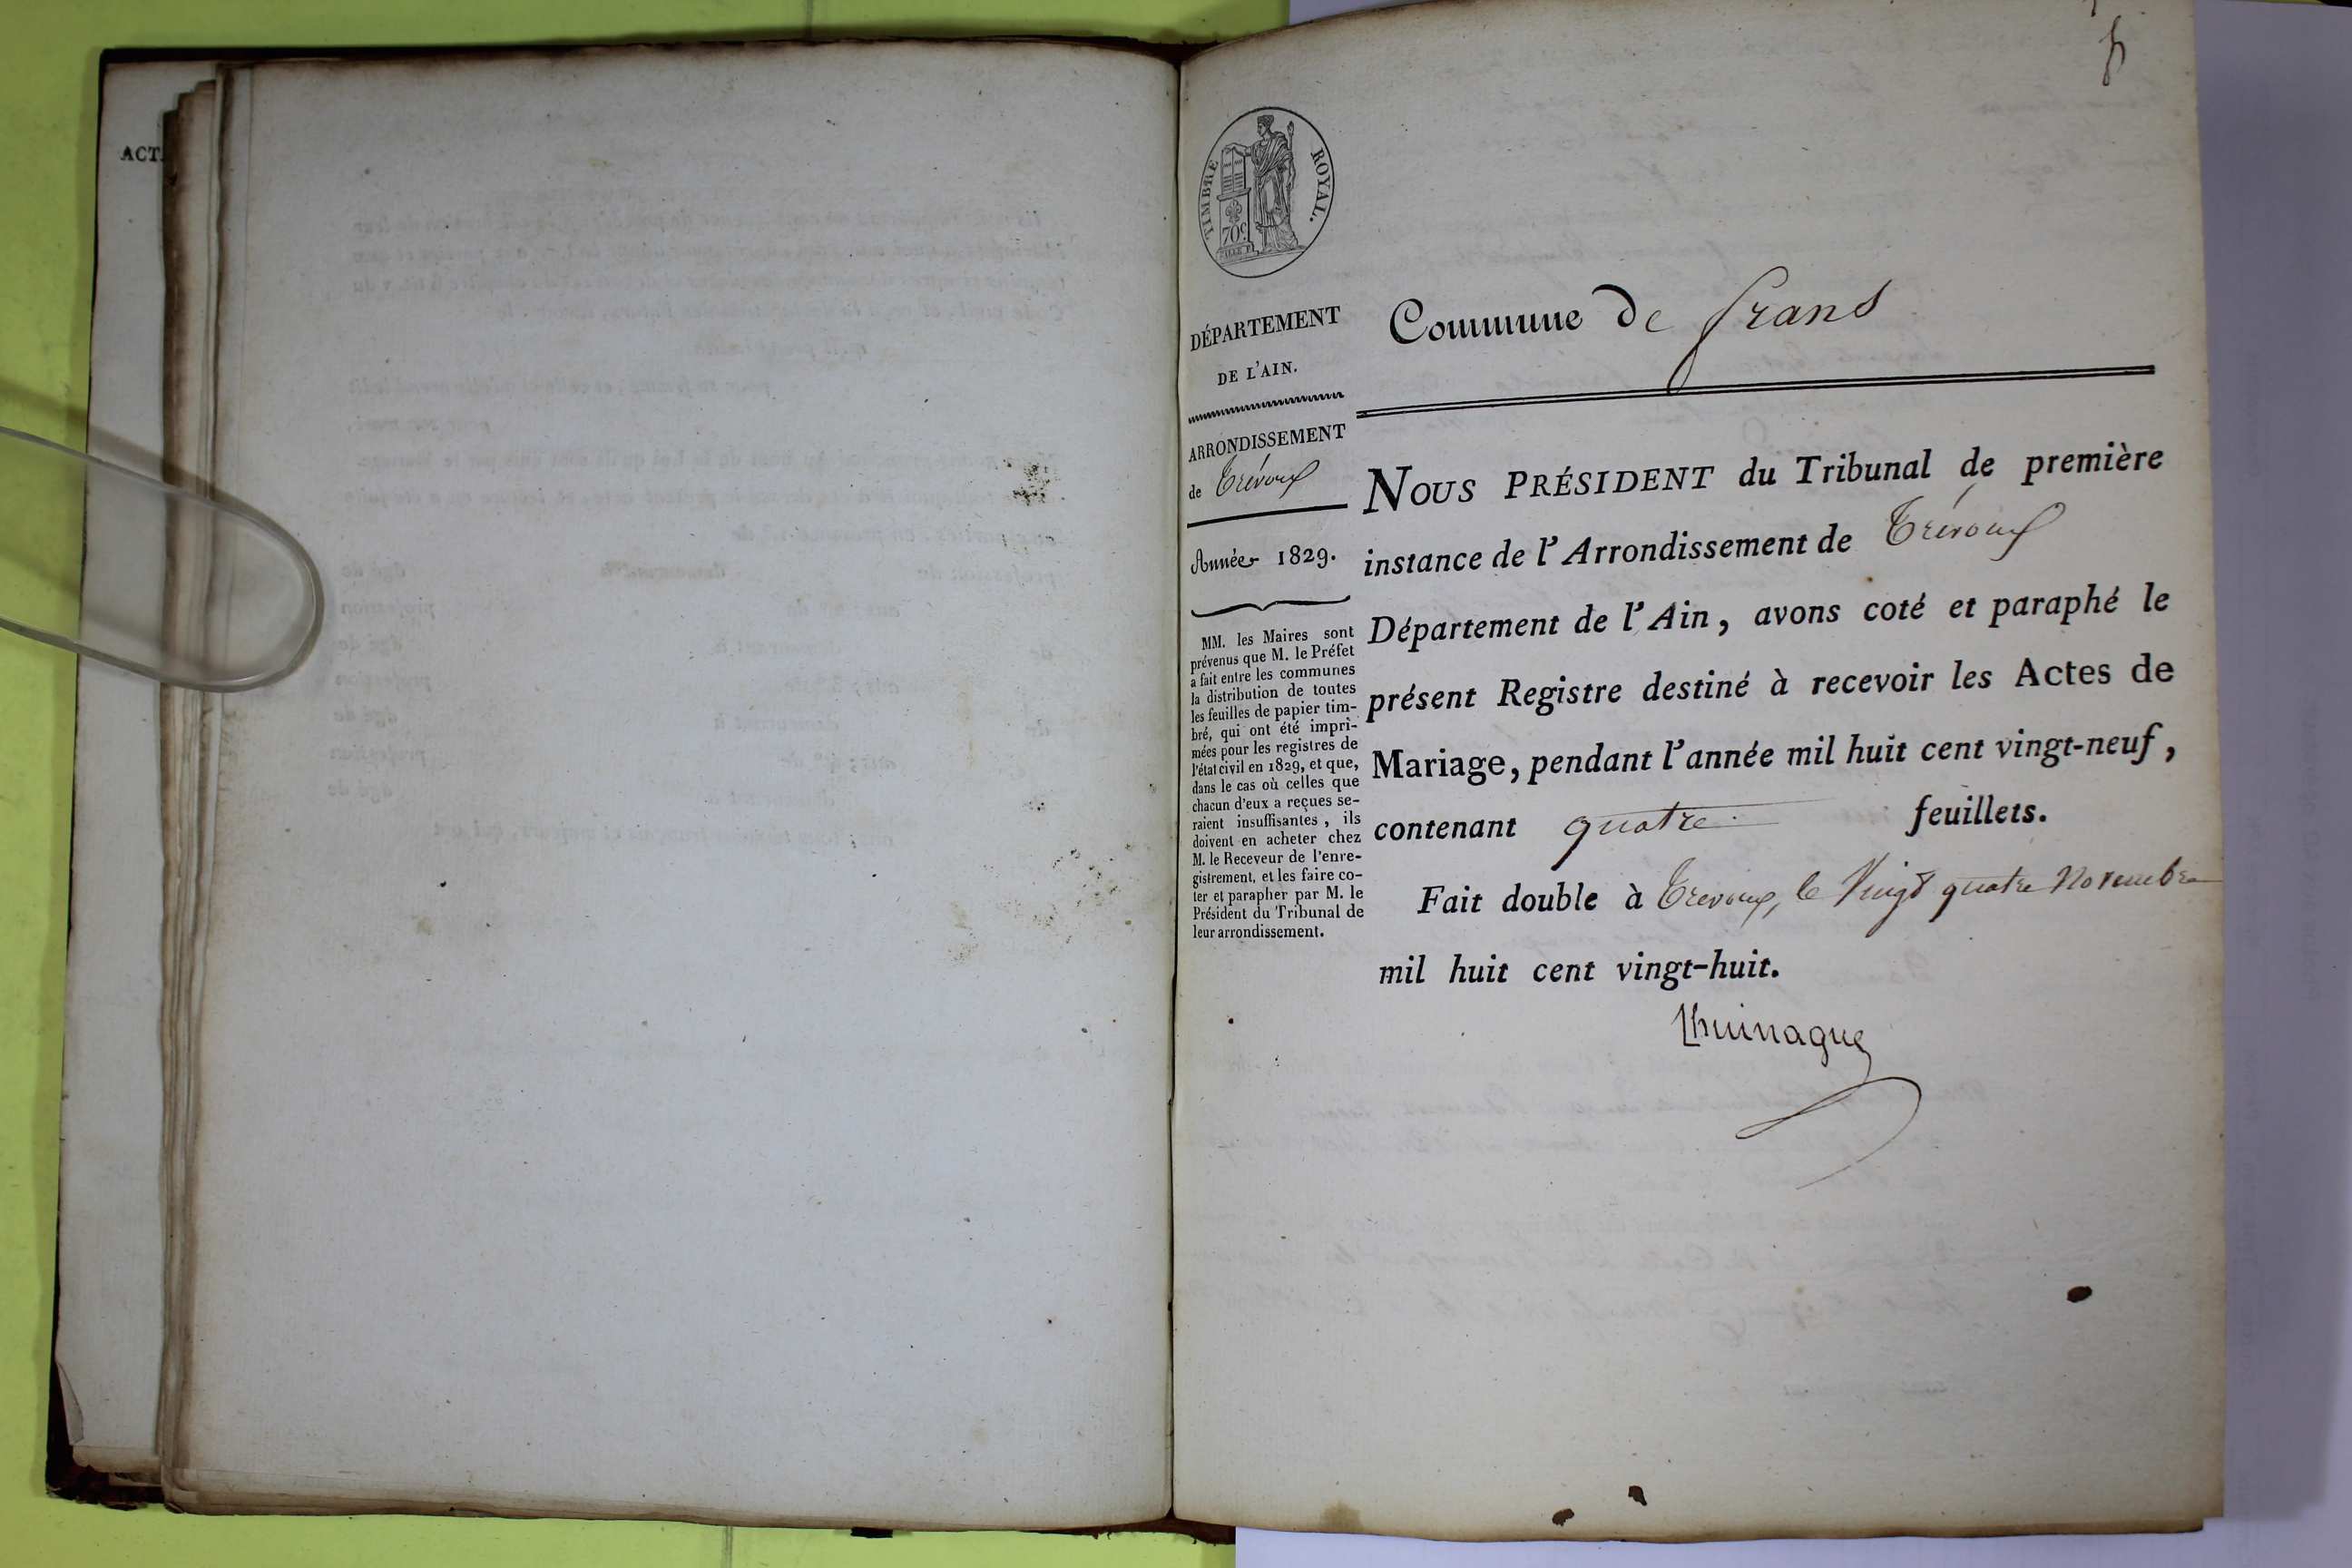 ACT
TIMBRE ROYAL.
70c
DÉPARTEMENT
DE L'AIN.
ARRONDISSEMENT
de Trévoux
Année 1829.
MM. les Maires sont
prévenus que M. le Préfet
a fait entre les communes
la distribution de toutes
les feuilles de papier tim-
bré, qui ont été impri-
mées pour les registres de
l'état civil en 1829, et que,
dans le cas où celles que
chacun d'eux a reçues se-
raient insuffisantes, ils
doivent en acheter chez
M. le Receveur de l'enre-
gistrement, et les faire co-
ter et parapher par M. le
Président du Tribunal de
leur arrondissement.
Commune de frans
NOUS PRÉSIDENT du Tribunal de première
instance de l'Arrondissement de Trévoux
Département de l'Ain, avons coté et paraphé le
présent Registre destiné à recevoir les Actes de
Mariage, pendant l'année mil huit cent vingt-neuf,
contenant quatre feuillets.
Fait double à Trevoux, le Vingt quatre Novembre
mil huit cent vingt-huit.